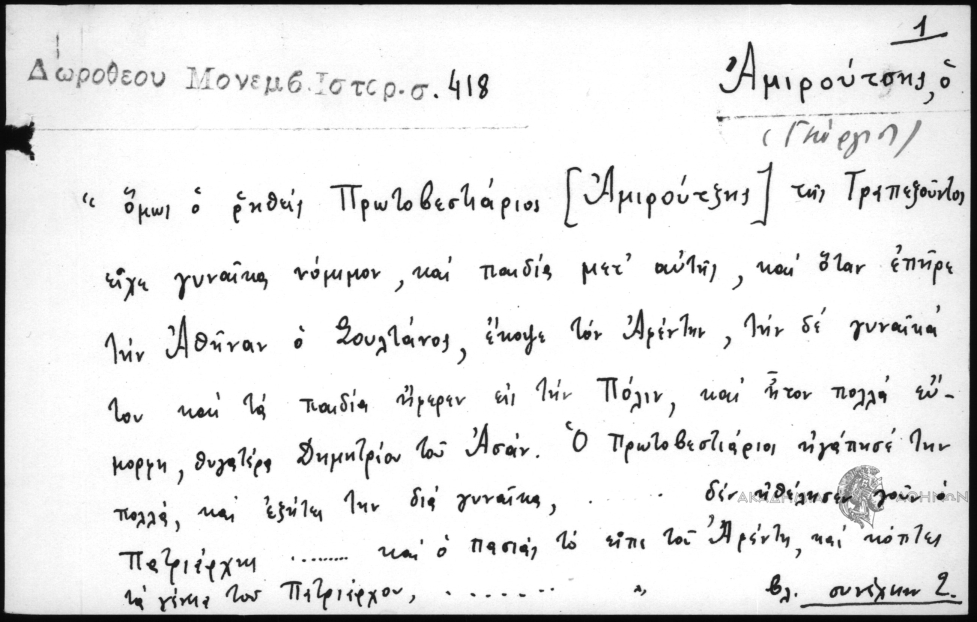 1
Δωροθεου Μονεμβ. Ιστορ. σ. 418
Ἀμιρούτσης, ὁ
(Γεώργιος)
“ ὅμως ὁ ῥηθείς Πρωτοβεστιάριος [Ἀμιρούτζης] τῆς Τραπεζοῦντος
εἶχε γυναῖκα νόμιμον, καί παιδία μετ' αὐτῆς, καί ὅταν ἐπῆρε
τήν Ἀθῆναν ὁ Σουλτάνος, ἔκοψε τόν Ἀφέντην, τήν δέ γυναῖκά
του καί τά παιδία ἤφερεν εἰς τήν Πόλιν, καί ἦτον πολλά εὔ-
μορφη, θυγατέρα Δημητρίου τοῦ Ἀσάν. Ὁ Πρωτοβεστιάριος ἠγάπησέ την
πολλά, καί ἐζήτει την διά γυναῖκα, ...... δέν ἠθέλησεν γοῦν ὁ
Πατριάρχης ......... καί ὁ πασιάς τό εἶπε τοῦ Ἀφέντη, καί κόπτει
τά γένεια τοῦ Πατριάρχου, ....... ” βλ. συνέχειαν 2.
ΑΚΑΔΗΜΙΑ ΑΘΗΝΩΝ